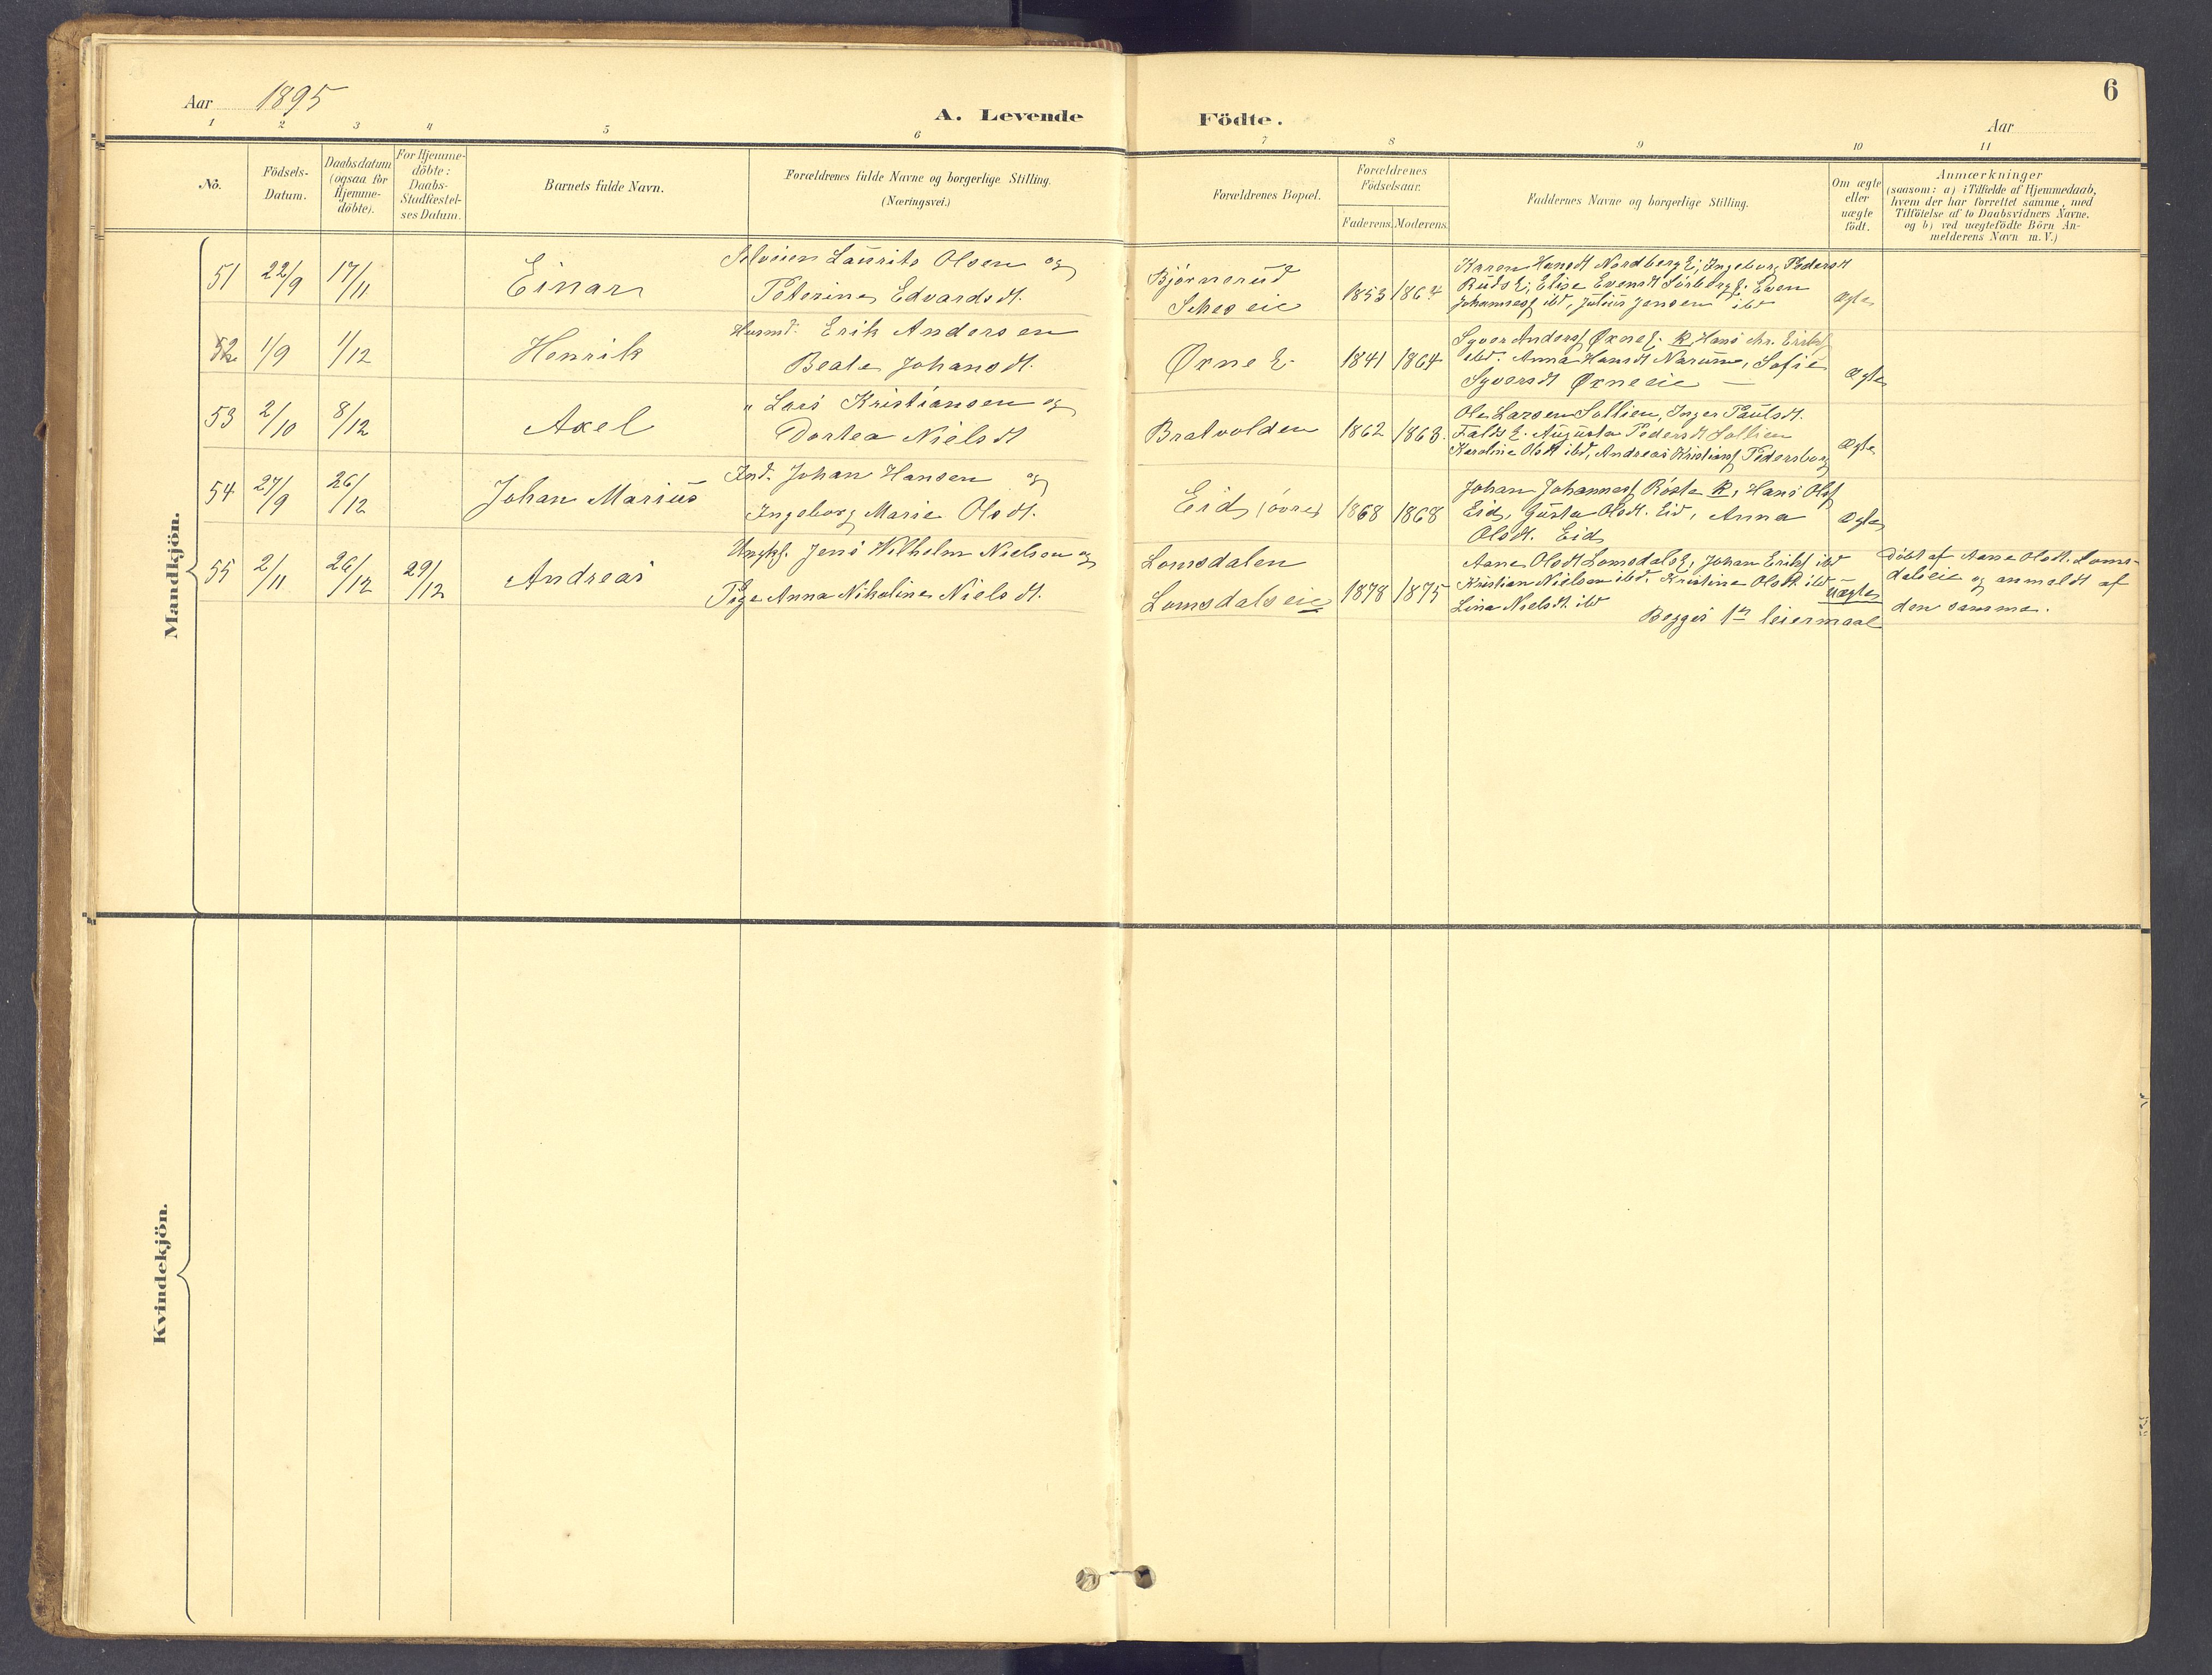 6
Aar 1895
A. Levende Födte.
Aar
1 2 3 4 5 6 7 8 9 10 11
No.
Födsels-
Datum.
Daabsdatum
(ogsaa for
Hjemme-
döbte).
For Hjemme-
döbte:
Daabs-
Stadfæstel-
ses Datum.
Barnets fulde Navn.
Forældrenes fulde Navne og borgerlige Stilling.
(Næringsvei.)
Forældrenes Bopæl.
Forældrenes
Födselsaar.
Faderens. Moderens.
Faddernes Navne og borgerlige Stilling.
Om ægte
eller
uægte
födt.
Anmærkninger
(saasom: a) i Tilfælde af Hjemmedaab,
hvem der har forrettet samme, med
Tilföielse af to Daabsvidners Navne.
og b) ved uægtefödte Börn An-
melderens Navn m.V.)
Mandkjön.
51 22/9 17/11 Einar
Selveier Laurits Olsen og
Peterine Edvardsdt.
Bjørnerud
1853 1864
Karen Hansdt Nordberg E; Ingeborg Pedersdt
Ruds E; Elise Evensdt Sørberg E. Even
Johannesf ibd, Julius Jensen ibd
Ægte
52 1/9 1/12 Henrik
Husmd. Erik Andersen
Beate Johansdt.
Øxne E.
1841 1864
Syver Andersf Øxne E. K, Hans Chr. Eriksf
ibd. Anna Hansdt Narum, Sofie
Syversdt Øxneeie —
Ægte
53 2/10 8/12 Axel
" Lars Kristiansen og
Dortea Nielsdt
Bratvolden
1862 1863.
Ole Larsen Sollien, Inger Paulsdt.
Falds E. Augusta Pedersdt Sollien
Karoline Olsdt ibd, Andreas Kristiansf Pedersborg
Ægte
54 27/9 26/12 Johan Marius
Ind. Johan Hansen og
Ingeborg Marie Olsdt.
Eid, (øvre)
1868 1868
Johan Johannesf Røste K, Hans Olsf
Eid, Gusta Olsdt. Eid, Anna
Olsdt. Eid
Ægte
55 2/11 26/12 29/12 Andreas
Ungk. Jens Wilhelm Nielsen og
Pige Anna Nikoline Nielsdt.
Lomsdalen
Lomsdalseie
1878 1875
Aane Olsdt Lomsdals E, Johan Eriksf ibd
Kristian Nielsen ibd. Kristine Olsdt. ibd —
Lina Nielsdt. ibd
Begges 1ste leiermaal
Uægte
Døbt af Aane Olsdt. Loms-
dalseie og anmeldt af
den samme.
Kvindekjön.